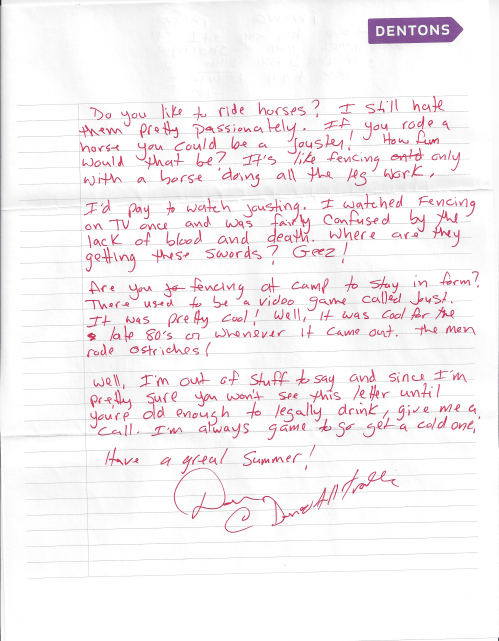 DENTONS
Do you like to ride horses? I still hate
them pretty passionately. If you rode a
horse you could be a jouster! How fun
would that be? It's like fencing only
with a horse doing all the leg work.
I'd pay to watch jousting. I watched Fencing
on TV once and was fairly confused by the
lack of blood and death. Where are they
getting these swords? Geez!
Are you fencing at camp to stay in form?
There used to be a video game called Joust.
It was pretty cool! Well, it was cool for the
late 80's or whenever it came out. The men
rode ostriches!
Well, I'm out of stuff to say and since I'm
pretty sure you won't see this letter until
you're old enough to legally drink, give me a
call. I'm always game to go get a cold one.
Have a great Summer!